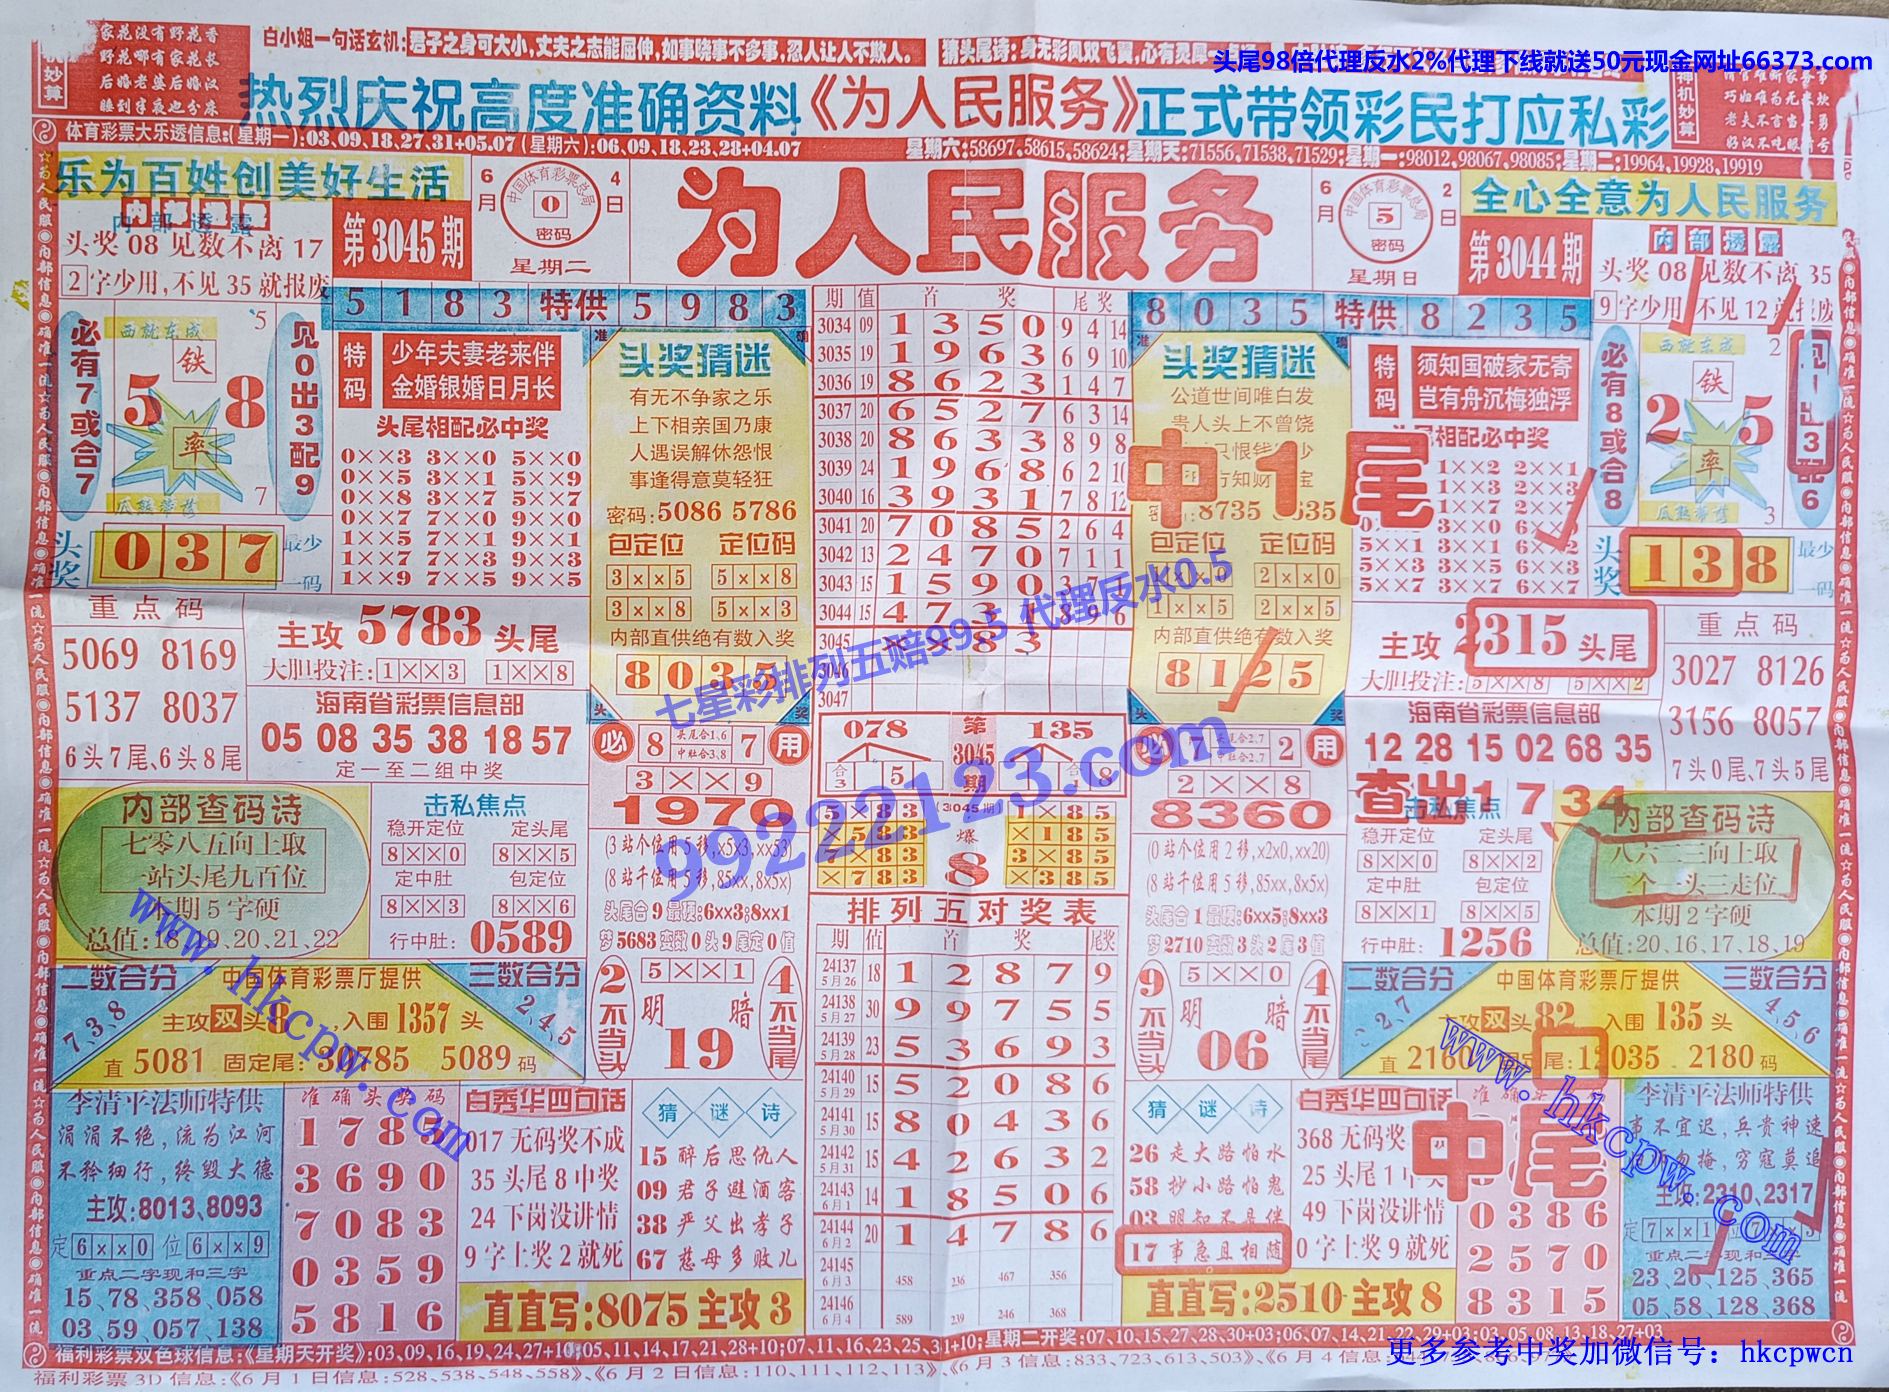 家花没有野花香
野花哪有家花长
后婚老婆后婚汉
睡到半夜也分床
白小姐一句话玄机:君子之身可大小,丈夫之志能屈伸,如事晓事不多事,忍人让人不欺人。
猜头尾诗:身无彩凤双飞翼,心有灵犀一
头尾98倍代理反水2%代理下线就送50元现金网址66373.com
热烈庆祝高度准确资料《为人民服务》正式带领彩民打应私彩
神机妙算
体育彩票大乐透信息:(星期一):03,09,18,27,31+05.07(星期六):06,09,18,23,28+04.07
星期六:58697,58615,58624;星期天:71556,71538,71529;星期一:98012,98067,98085;星期二:19964,19928,19919
乐为百姓创美好生活
内部透露
头奖08见数不离17
2字少用,不见35就报废
第3045期
6月4日
中国体育彩票总局
0
密码
星期二
为人民服务
6月2日
中国体育彩票总局
5
密码
星期日
第3044期
全心全意为人民服务
内部透露
头奖08见数不离35
9字少用,不见12就报废
5183特供5983
必有7或合7
西就东成
5
铁
5 8
率
7
瓜熟蒂落
见0出3配9
特码
少年夫妻老来伴
金婚银婚日月长
头尾相配必中奖
0××3 3××0 5××0
0××5 3××1 5××9
0××8 3××7 5××7
0××7 7××0 9××0
1××5 7××1 9××1
1××7 7××3 9××3
1××9 7××5 9××5
头奖
037
最少一码
头奖猜谜
有无不争家之乐
上下相亲国乃康
人遇误解休怨恨
事逢得意莫轻狂
密码:5086 5786
包定位 定位码
3××5 5××8
3××8 5××3
内部直供绝有数入奖
8035
期 值 首奖 尾奖
3034 09 1350 9 4 14
3035 19 1963 6 9 10
3036 19 8623 1 4 7
3037 20 6527 6 3 14
3038 20 8633 8 9 8
3039 24 1968 6 2 10
3040 16 3931 7 8 12
3041 20 7085 2 6 4
3042 13 2470 7 1 1
3043 15 1590
3044 15 4731
3045 ××83
3046
3047
8035特供8235
头奖猜谜
公道世间唯白发
贵人头上不曾饶
中1尾
包定位 定位码
2××0
1××5 2××5
内部直供绝有数入奖
8125
特码
须知国破家无寄
岂有舟沉梅独浮
头尾相配必中奖
1××2 2××1
1××3 2××3
1××7 2××7
3××0
5××1 3××1 6××2
5××3 3××6 6××3
5××7 3××7 6××7
必有8或合8
西就东成
2
铁
2 5
率
3
瓜熟蒂落
头奖
138
最少一码
重点码
5069 8169
5137 8037
6头7尾、6头8尾
主攻5783头尾
大胆投注:1××3 1××8
海南省彩票信息部
05 08 35 38 18 57
定一至二组中奖
主攻2315头尾
大胆投注:5××8 5××2
海南省彩票信息部
12 28 15 02 68 35
重点码
3027 8126
3156 8057
7头0尾、7头5尾
七星彩排列五赔99.5 代理反水0.5
99222123.com
必 8 头尾合1,6 中肚合3,8 7 用
3××9
1970
(3站个位用5移,x5x3,xx53)
(8站千位用5移,85xx,8x5x)
头尾合9最硬:6xx3;8xx1
梦5683变数0头9尾定0值
078
第3045期
135
合3 5
合8
(3045期)
5×83
×583
7×83
×783
爆8
1×85
×185
3×85
×385
必 7 头尾合2,7 中肚合2,7 2 用
2××8
8360
(0站个位用2移,x2x0,xx20)
(8站千位用5移,85xx,8x5x)
头尾合1最硬:6xx5;8xx3
梦2710变数3头2尾3值
查出1 7,34
内部查码诗
七零八五向上取
一站头尾九百位
本期5字硬
总值:18、19、20、21、22
击私焦点
稳开定位 定头尾
8××0 8××5
定中肚 包定位
8××3 8××6
行中肚:0589
击私焦点
稳开定位 定头尾
8××0 8××2
定中肚 包定位
8××1 8××5
行中肚:1256
内部查码诗
八六二三向上取
二个一头三走位
本期2字硬
总值:20、16、17、18、19
二数合分
7、3、8
中国体育彩票厅提供
三数合分
2、4、5
主攻双头8,入围1357头
直5081 固定尾:30785 5089码
2不当头
5××1
明暗
19
4不当尾
排列五对奖表
期 值 首奖 尾奖
24137 5月26 18 1 2 8 7 9
24138 5月27 30 9 9 7 5 5
24139 5月28 23 5 3 6 9 3
24140 5月29 15 5 2 0 8 6
24141 5月30 15 8 0 4 3 6
24142 5月31 15 4 2 6 3 2
24143 6月1 14 1 8 5 0 6
24144 6月2 20 1 4 7 8 6
24145 6月3 458 236 467 356
24146 6月4 589 239 246 368
9不当头
5××0
明暗
06
4不当尾
二数合分
中国体育彩票厅提供
三数合分
4、5、6
主攻双头82 入围135头
直2160 2180码
李清平法师特供
涓涓不绝,流为江河
不矜细行,终毁大德
主攻:8013、8093
定6××0 位6××9
重点二字现和三字
15、78、358、058
03、59、057、138
准确头奖码
1785
3690
7083
0359
5816
白秀华四句话
017无码奖不成
35头尾8中奖
24下岗没讲情
9字上奖2就死
猜谜诗
15 醉后思仇人
09 君子避酒客
38 严父出孝子
67 慈母多败儿
直直写:8075主攻3
猜谜诗
26 走大路怕水
58 抄小路怕鬼
03 明知不是伴
17 事急且相随
白秀华四句话
368无码奖
25头尾1中
49下岗没讲情
0字上奖9就死
直直写:2510主攻8
中尾
0386
2570
8315
李清平法师特供
事不宜迟,兵贵神速
穷寇莫追
主攻:2310、2317
定7××1
重点二字现和三字
23、26、125、365
05、58、128、368
www.hkcpw.com
www.hkcpw.com
福利彩票双色球信息:《星期天开奖》:03,09,16,19,24,27+10;05,11,14,17,21,28+10;07,11,16,23,25,31+10;星期二开奖:07,10,15,27,28,30+03;06,07,14,21,22,29+03;03,05,08,13,18,27+03
福利彩票3D信息:《6月1日信息:528、538、548、558》、《6月2日信息:110、111、112、113》、《6月3信息:833、723、613、503》、《6月4信息:
更多参考中奖加微信号:hkcpwcn